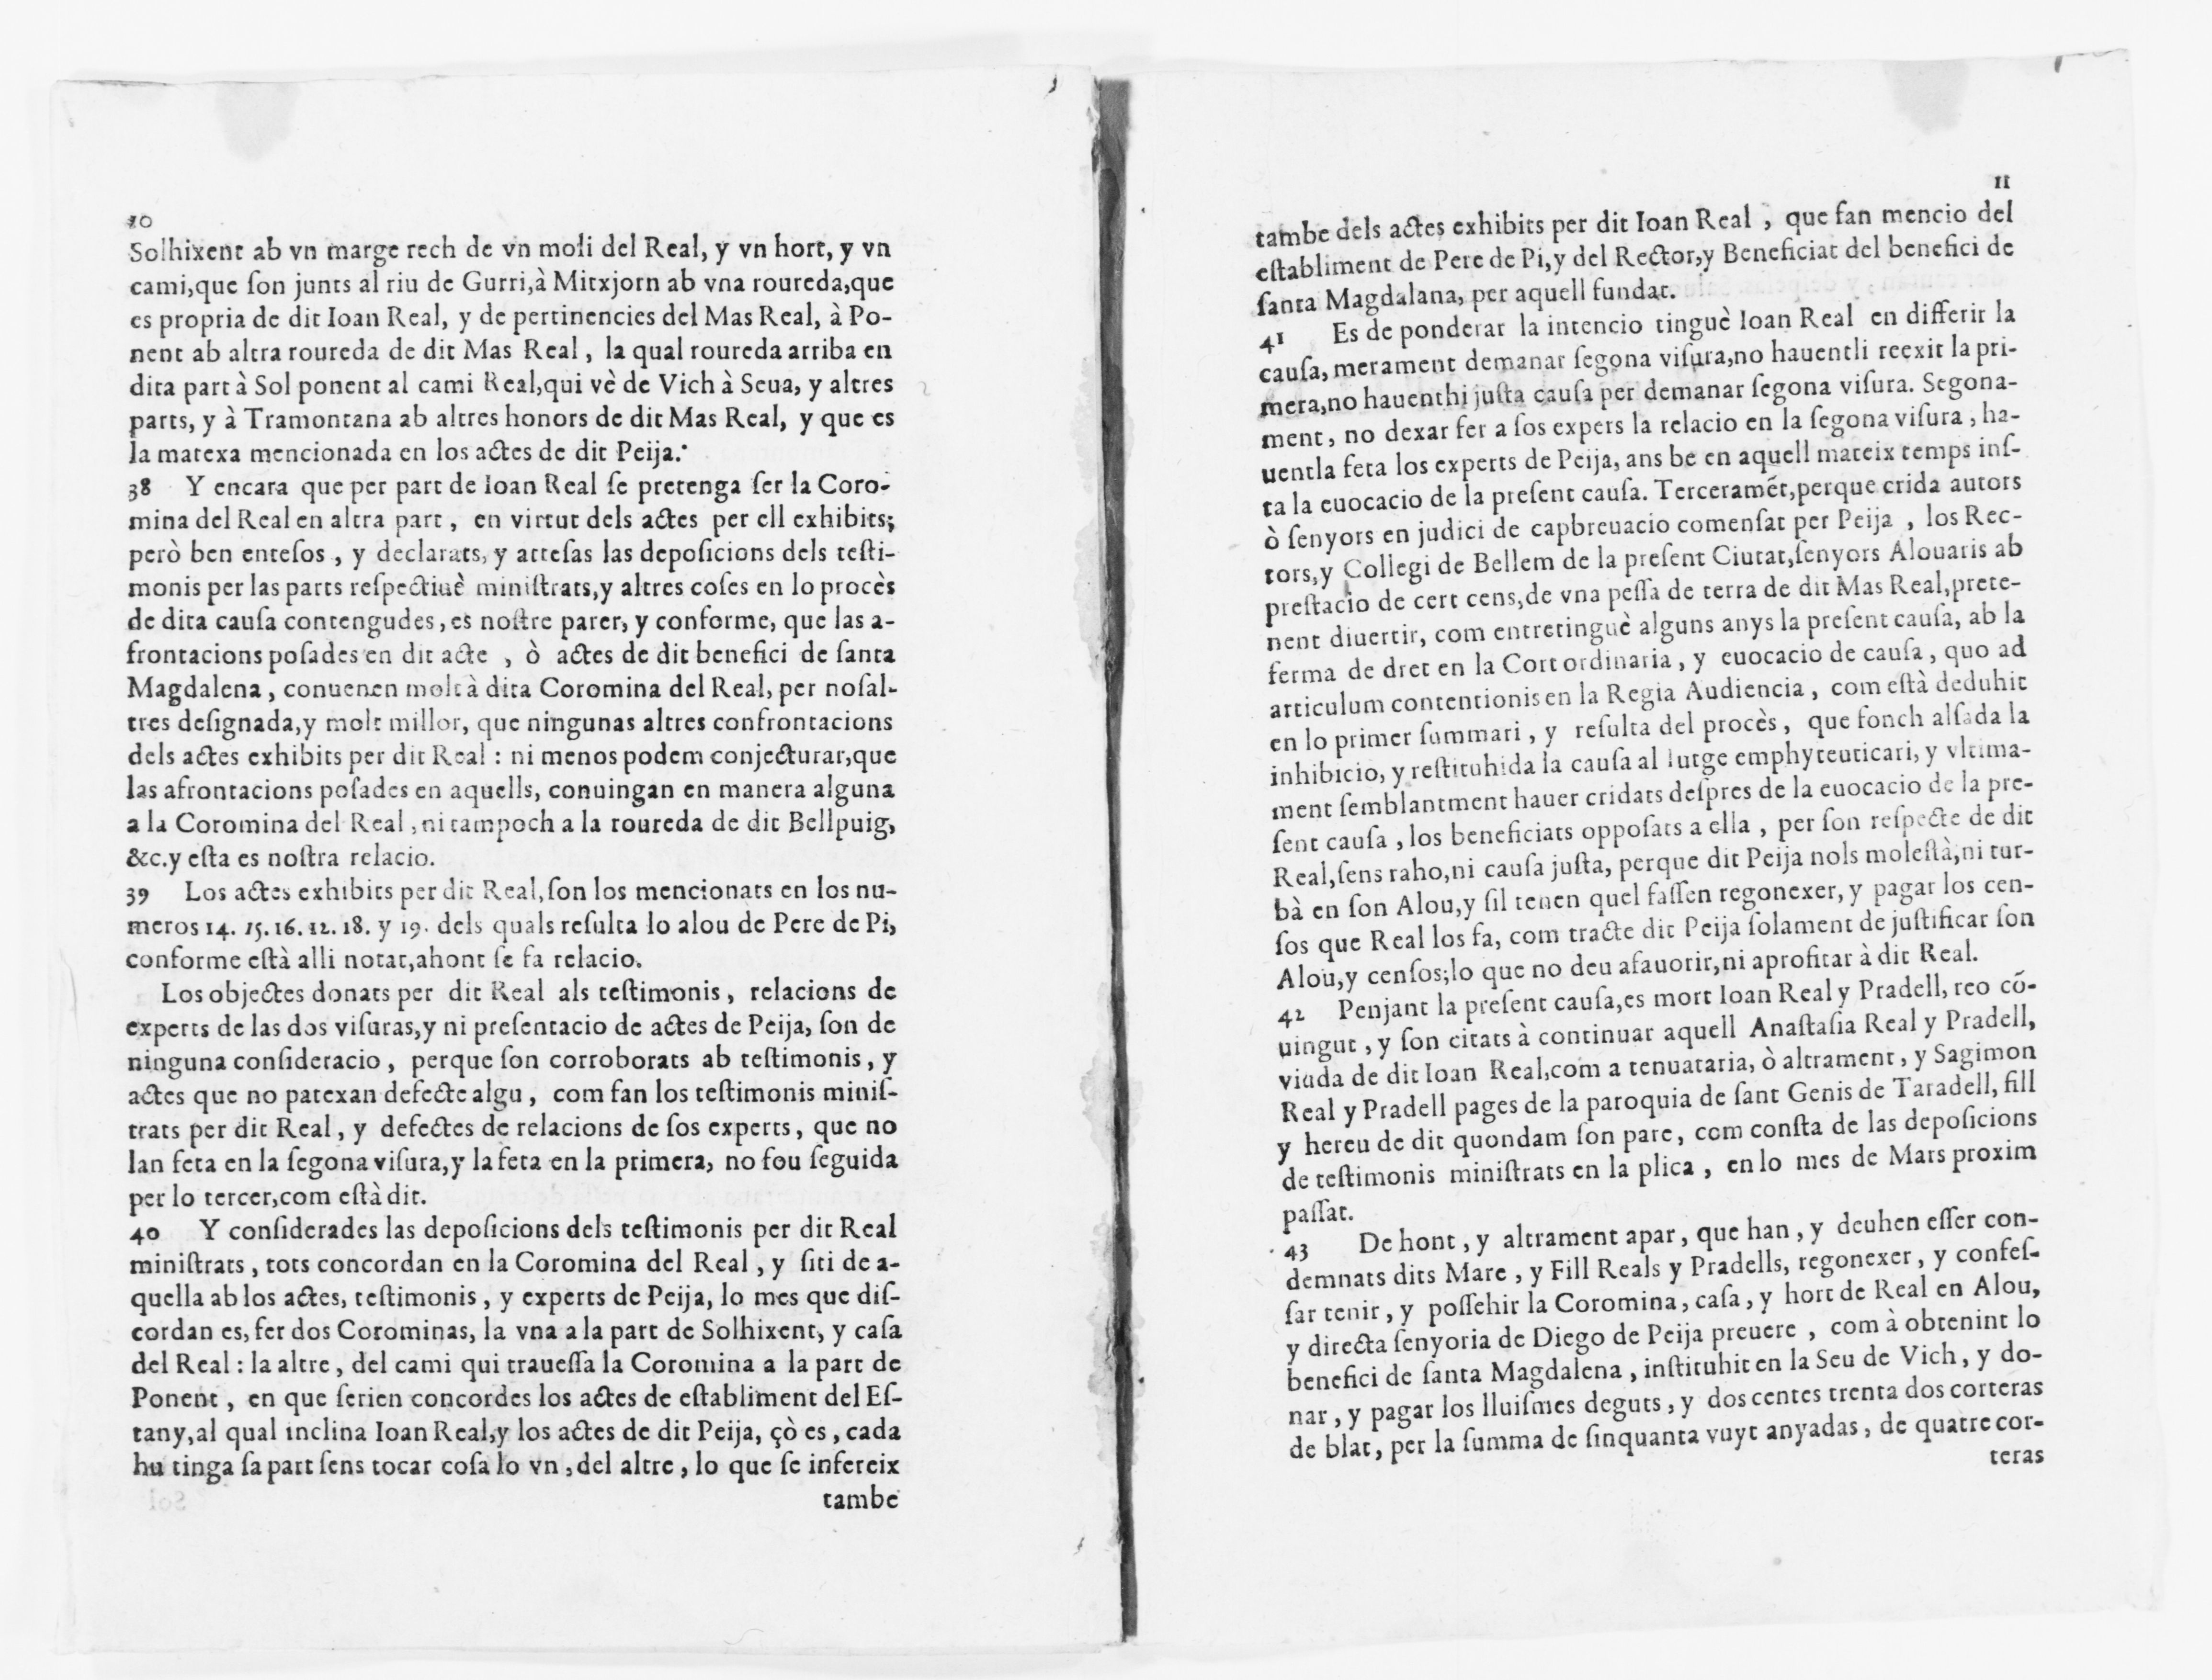 10
Solhixent ab vn marge rech de vn moli del Real, y vn hort, y vn
cami,que ſon junts al riu de Gurri,à Mitxjorn ab vna roureda,que
es propria de dit Ioan Real, y de pertinencies del Mas Real, à Po-
nent ab altra roureda de dit Mas Real, la qual roureda arriba en
dita part à Sol ponent al cami Real,qui vè de Vich à Seua, y altres
parts, y à Tramontana ab altres honors de dit Mas Real, y que es
la matexa mencionada en los actes de dit Peija.
38 Y encara que per part de Ioan Real ſe pretenga ſer la Coro-
mina del Real en altra part, en virtut dels actes per ell exhibits;
però ben enteſos, y declarats, y atteſas las depoſicions dels teſti-
monis per las parts reſpectiuè miniſtrats,y altres coſes en lo procès
de dita cauſa contengudes, es noſtre parer, y conforme, que las a-
frontacions poſades en dit acte, ò actes de dit benefici de ſanta
Magdalena, conuenen molt à dita Coromina del Real, per noſal-
tres deſignada,y molt millor, que ningunas altres confrontacions
dels actes exhibits per dit Real : ni menos podem conjecturar,que
las afrontacions poſades en aquells, conuingan en manera alguna
a la Coromina del Real, ni tampoch a la roureda de dit Bellpuig,
&c.y eſta es noſtra relacio.
39 Los actes exhibits per dit Real, ſon los mencionats en los nu-
meros 14. 15. 16. 12. 18. y 19. dels quals reſulta lo alou de Pere de Pi,
conforme eſtà alli notat,ahont ſe fa relacio.
Los objectes donats per dit Real als teſtimonis, relacions de
experts de las dos viſuras,y ni preſentacio de actes de Peija, ſon de
ninguna conſideracio, perque ſon corroborats ab teſtimonis, y
actes que no patexan defecte algu, com fan los teſtimonis miniſ-
trats per dit Real, y defectes de relacions de ſos experts, que no
lan feta en la ſegona viſura,y la feta en la primera, no fou ſeguida
per lo tercer,com eſtà dit.
40 Y conſiderades las depoſicions dels teſtimonis per dit Real
miniſtrats, tots concordan en la Coromina del Real, y ſiti de a-
quella ab los actes, teſtimonis, y experts de Peija, lo mes que diſ-
cordan es, fer dos Corominas, la vna a la part de Solhixent, y caſa
del Real : la altre, del cami qui traueſſa la Coromina a la part de
Ponent, en que ſerien concordes los actes de eſtabliment del Eſ-
tany,al qual inclina Ioan Real,y los actes de dit Peija, çò es, cada
hu tinga ſa part ſens tocar coſa lo vn, del altre, lo que ſe infereix
tambe
11
tambe dels actes exhibits per dit Ioan Real, que fan mencio del
eſtabliment de Pere de Pi,y del Rector,y Beneficiat del benefici de
ſanta Magdalana, per aquell fundat.
41 Es de ponderar la intencio tinguè Ioan Real en differir la
cauſa, merament demanar ſegona viſura,no hauentli reexit la pri-
mera,no hauenthi juſta cauſa per demanar ſegona viſura. Segona-
ment, no dexar fer a ſos expers la relacio en la ſegona viſura, ha-
uentla feta los experts de Peija, ans be en aquell mateix temps inſ-
ta la euocacio de la preſent cauſa. Terceramēt,perque crida autors
ò ſenyors en judici de capbreuacio comenſat per Peija, los Rec-
tors,y Collegi de Bellem de la preſent Ciutat,ſenyors Alouaris ab
preſtacio de cert cens,de vna peſſa de terra de dit Mas Real,prete-
nent diuertir, com entretinguè alguns anys la preſent cauſa, ab la
ferma de dret en la Cort ordinaria, y euocacio de cauſa, quo ad
articulum contentionis en la Regia Audiencia, com eſtà deduhit
en lo primer ſummari, y reſulta del procès, que fonch alſada la
inhibicio, y reſtituhida la cauſa al Iutge emphyteuticari, y vltima-
ment ſemblantment hauer cridats deſpres de la euocacio de la pre-
ſent cauſa, los beneficiats oppoſats a ella, per ſon reſpecte de dit
Real,ſens raho,ni cauſa juſta, perque dit Peija nols moleſtà,ni tur-
bà en ſon Alou,y ſil tenen quel faſſen regonexer, y pagar los cen-
ſos que Real los fa, com tracte dit Peija ſolament de juſtificar ſon
Alou,y cenſos;lo que no deu afauorir,ni aprofitar à dit Real.
42 Penjant la preſent cauſa,es mort Ioan Real y Pradell, reo cō-
uingut, y ſon citats à continuar aquell Anaſtaſia Real y Pradell,
viuda de dit Ioan Real,com a tenuataria, ò altrament, y Sagimon
Real y Pradell pages de la paroquia de ſant Genis de Taradell, fill
y hereu de dit quondam ſon pare, com conſta de las depoſicions
de teſtimonis miniſtrats en la plica, en lo mes de Mars proxim
paſſat.
43 De hont, y altrament apar, que han, y deuhen eſſer con-
demnats dits Mare, y Fill Reals y Pradells, regonexer, y confeſ-
ſar tenir, y poſſehir la Coromina, caſa, y hort de Real en Alou,
y directa ſenyoria de Diego de Peija preuere, com à obtenint lo
benefici de ſanta Magdalena, inſtituhit en la Seu de Vich, y do-
nar, y pagar los lluiſmes deguts, y dos centes trenta dos corteras
de blat, per la ſumma de ſinquanta vuyt anyadas, de quatre cor-
teras